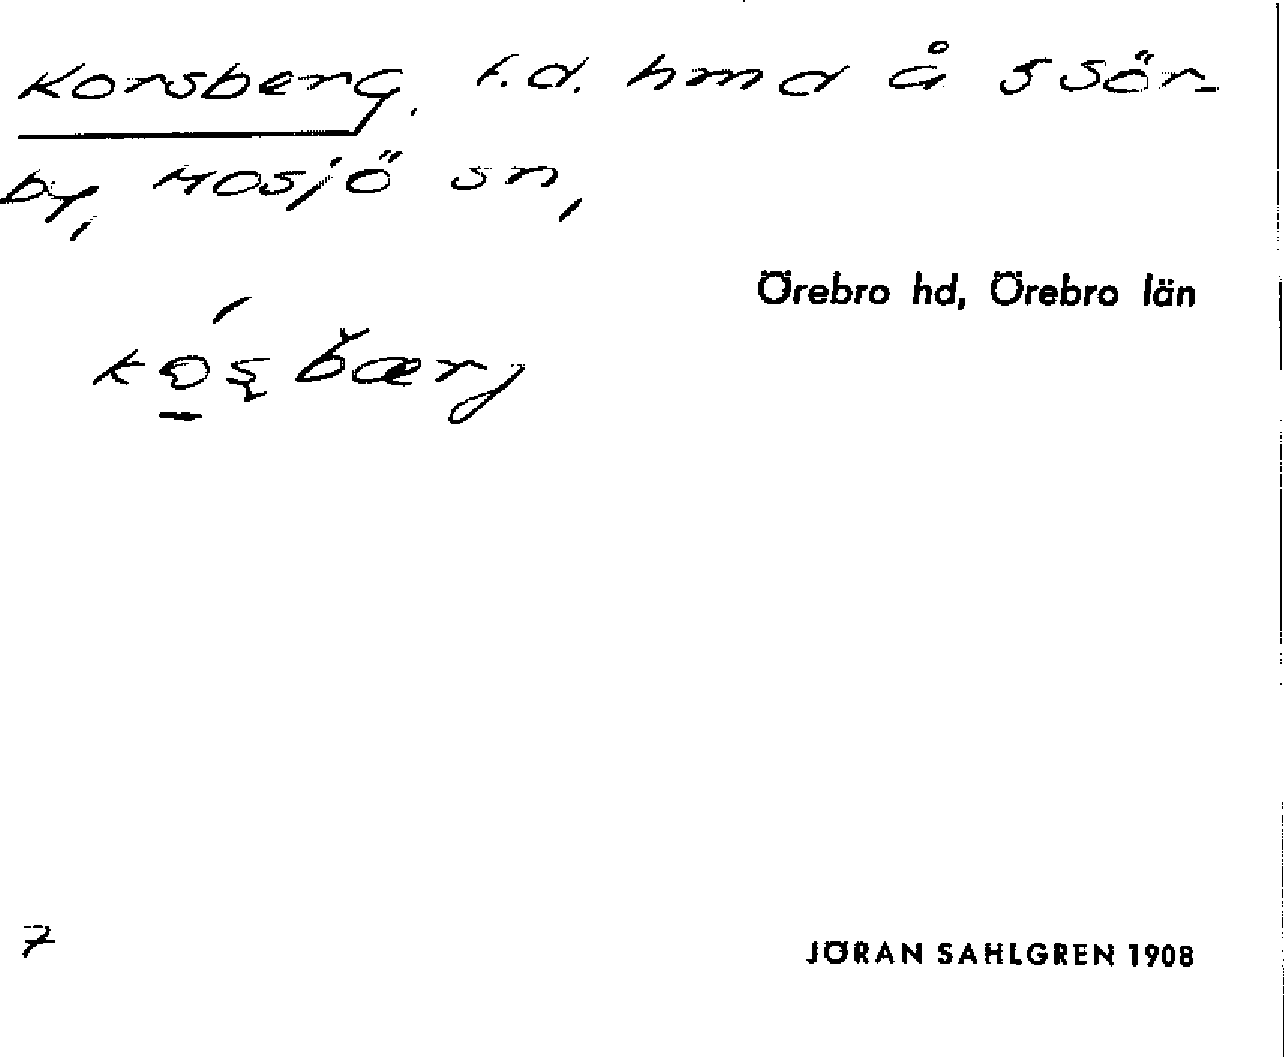 Korsberg, f.d. hmd å S Sör-
by, Mosjö sn,
Örebro hd, Örebro län
7
JÖRAN SAHLGREN 1908